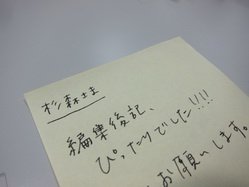 杉森さま
編集後記、
ぴったりでした!!!!
お願いします。